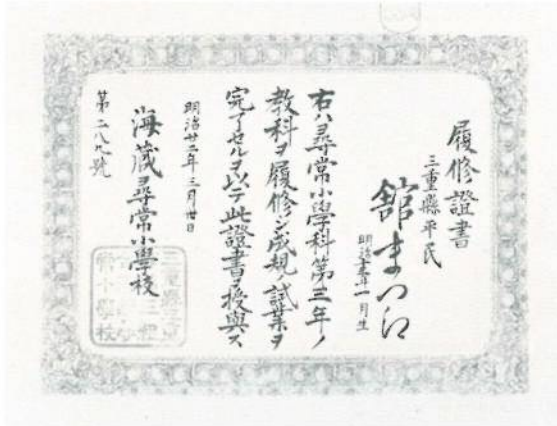 履修證書
三重縣平民
舘まつ江
明治十五年一月生
右ハ尋常小學科第三年ノ
教科ヲ履修シ成規ノ試業ヲ
完了セルヲ以テ此證書ヲ授與ス
明治廿二年三月卅日
海蔵尋常小學校
第二八九號